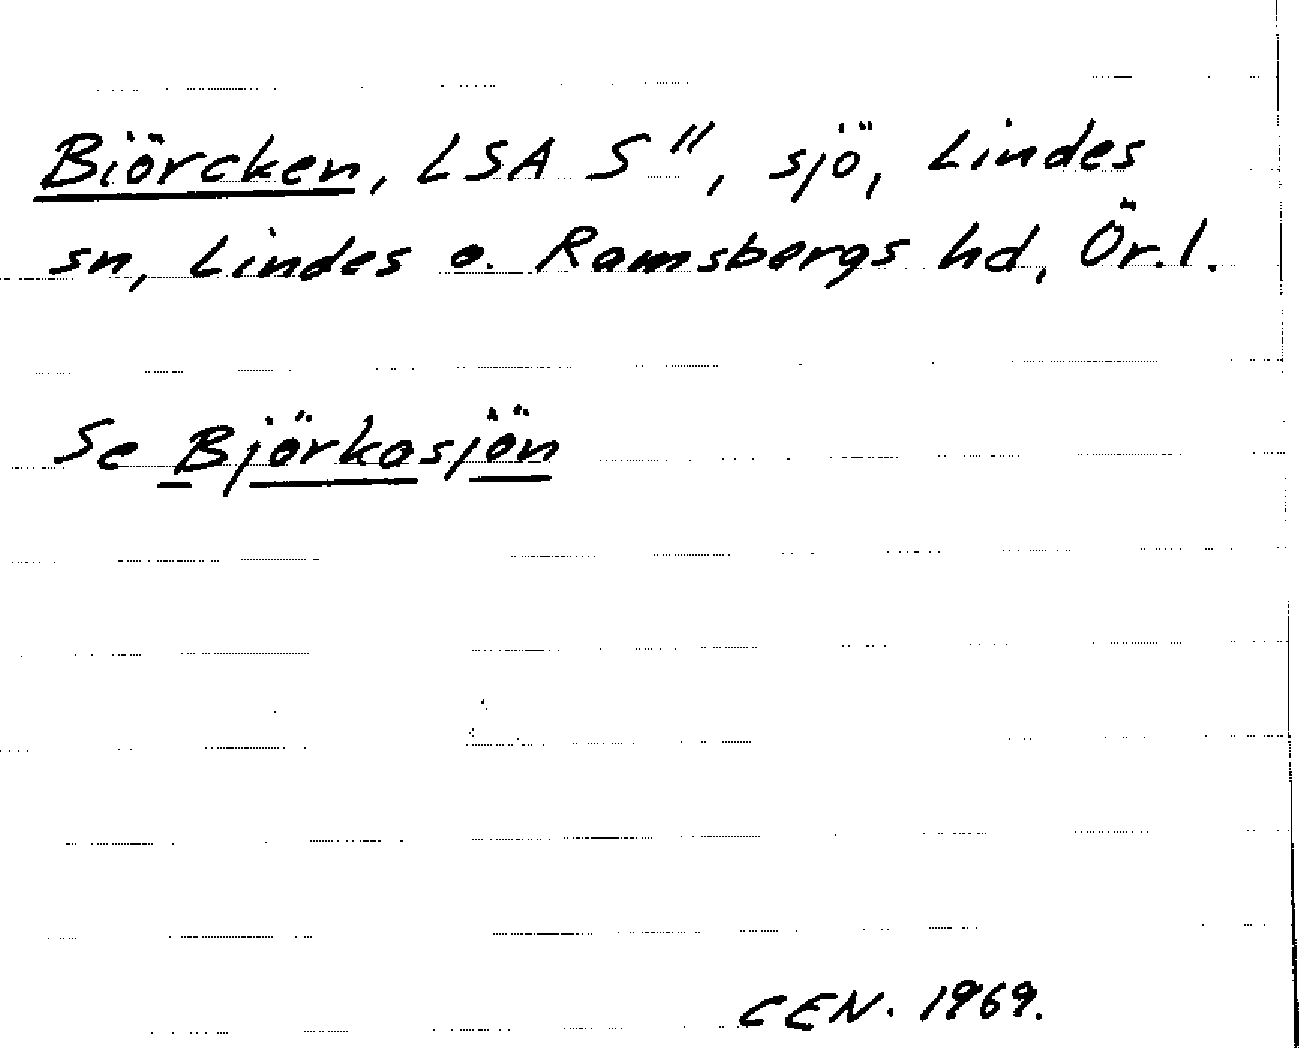 Biörcken, LSA S", sjö, Lindes
sn, Lindes o. Ramsbergs hd, Ör.l.
Se Björkasjön
CEN. 1969.